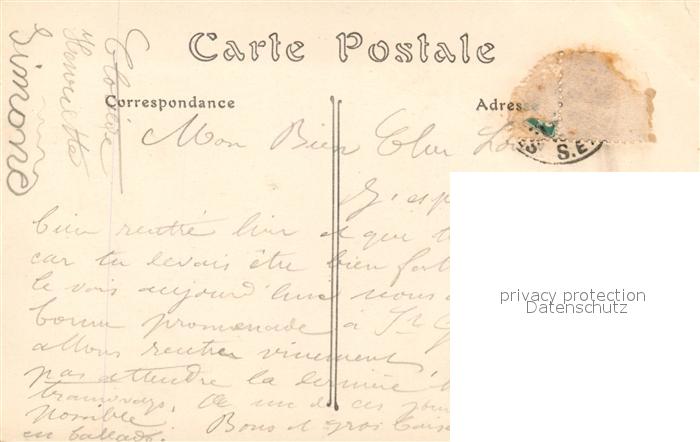 Carte Postale
Correspondance
Adresse
Mon Bien Cher Lou
J'esp
bien rentré hier et que t
car tu devais être bien fati
le vois aujourd'hui nous a
bonne promenade à St G
allons rentrer vivement
pas attendre la dernière
tramways. Un de ces jours
possible Bons et gros baise
en ballade.
Simone
Henriette
S.E
privacy protection
Datenschutz